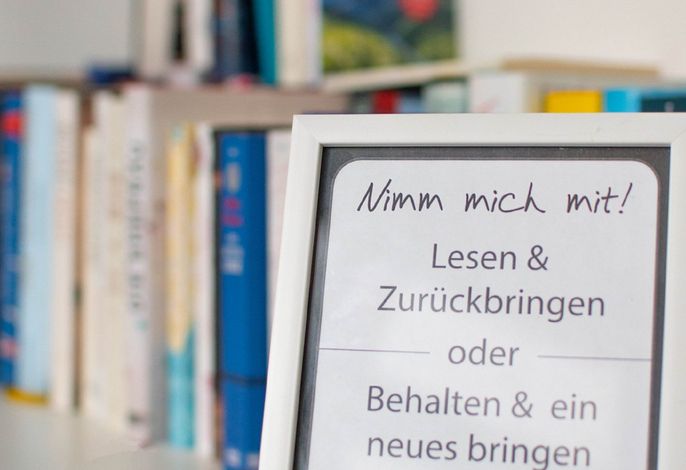 Nimm mich mit!
Lesen &
Zurückbringen
oder
Behalten & ein
neues bringen